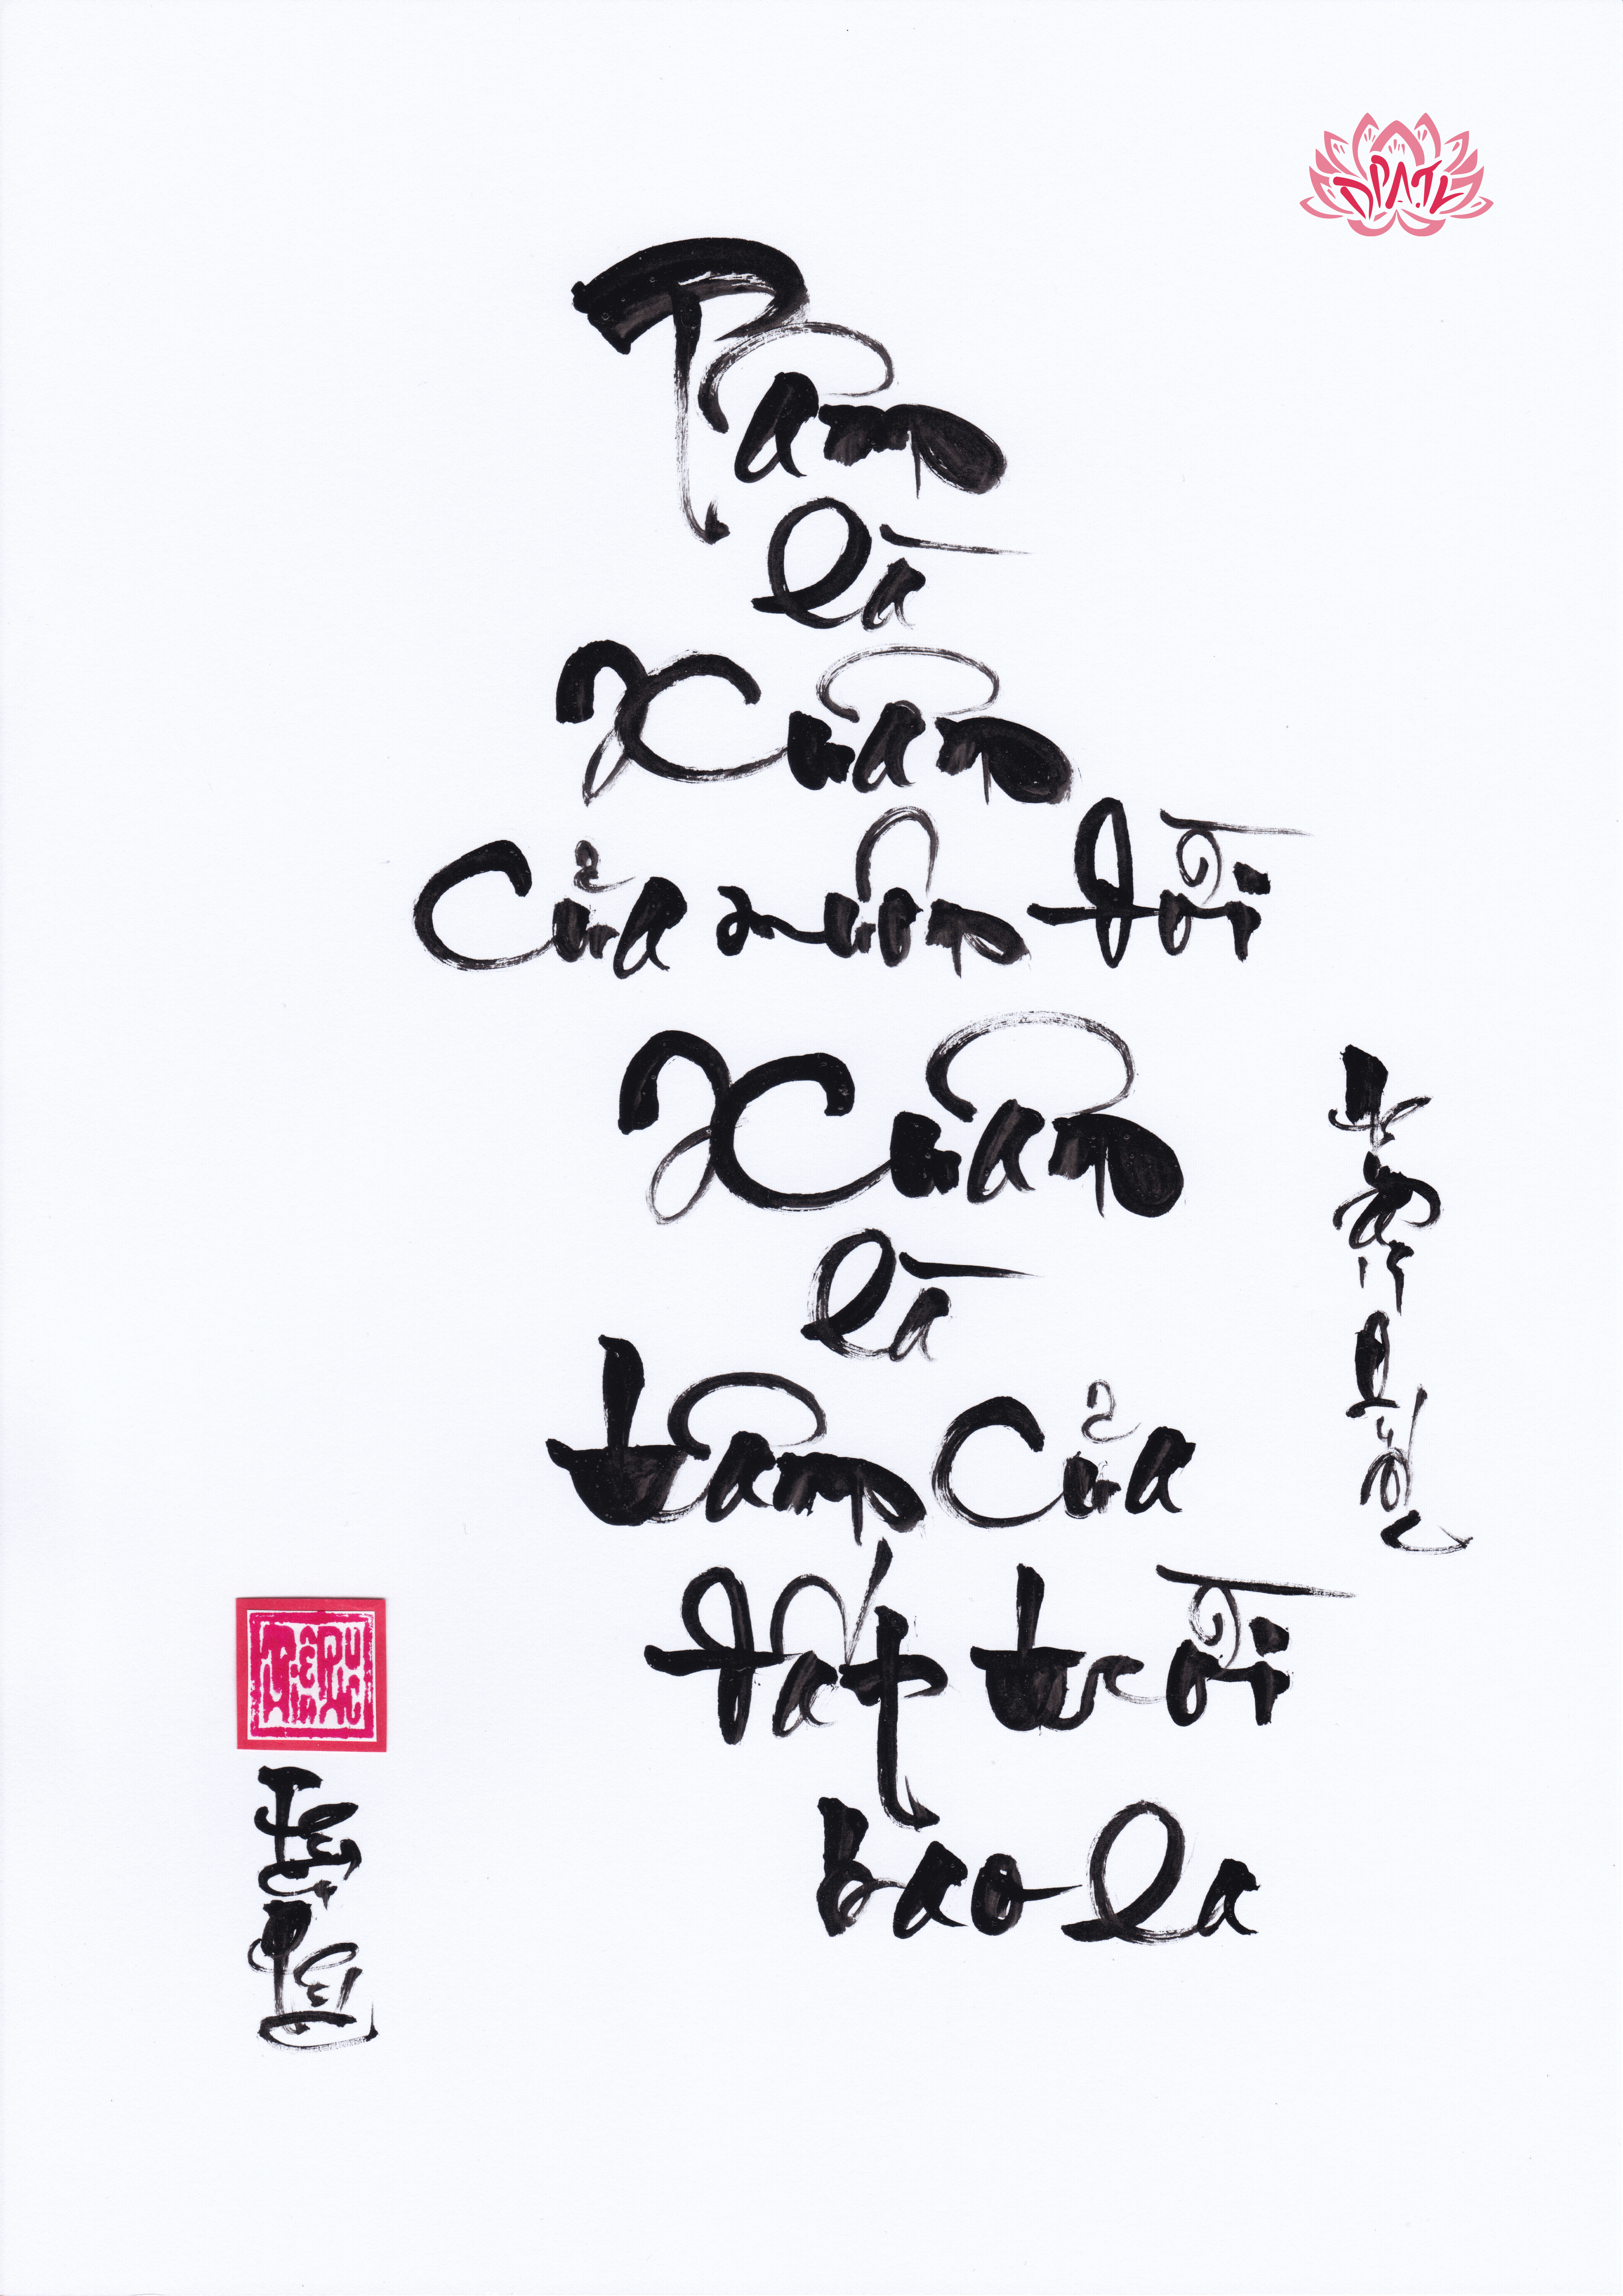 DPATL
Tâm
là
Xuân
Của muôn đời
Xuân
là
tâm Của
đất trời
bao la